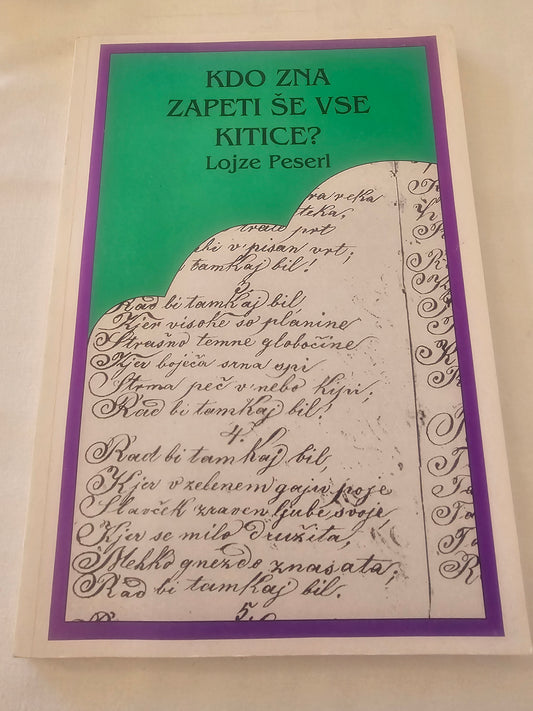 KDO ZNA
ZAPETI ŠE VSE
KITICE?
Lojze Peserl
reka
teka,
prt
v pisan vrt;
tamkaj bil!
3.
Rad bi tamkaj bil,
Kjer visoke so planine
Strašno temne globočine
Kjer boječa srna spi
Strma peč v nebo kipi;
Rad bi tamkaj bil!
4.
Rad bi tamkaj bil,
Kjer v zelenem gaju poje
Slavček zraven ljube svoje,
Kjer se milo družita,
Mehko gnezdo znašata;
Rad bi tamkaj bil.
5.